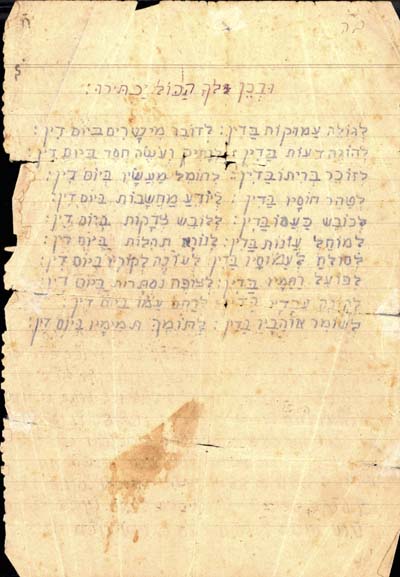 ב״ה
וּבְכֵן לְךָ הַכּוֹל יַכְתִּירוּ:
לְגוֹלֶה עֲמוּקוֹת בַּדִין: לְדוֹבֵר מֵישָׁרִים בְּיוֹם דִין:
לְהוֹגֶה דֵעוֹת בַּדִין: לְוָתִיק וְעֹשֶׂה חֶסֶד בְּיוֹם דִין:
לְזוֹכֵר בְּרִיתוֹ בַּדִין: לְחוֹמֵל מַעֲשָׂיו בְּיוֹם דִין:
לְטַהֵר חוֹסָיו בַּדִין: לְיוֹדֵעַ מַחֲשָׁבוֹת בְּיוֹם דִין:
לְכוֹבֵשׁ כַּעֲסוֹ בַּדִין: לְלוֹבֵשׁ צְדָקוֹת בְּיוֹם דִין:
לְמוֹחֵל עֲוֹנוֹת בַּדִין: לְנוֹרָא תְהִלּוֹת בְּיוֹם דִין:
לְסוֹלֵחַ לַעֲמוּסָיו בַּדִין: לְעוֹנֶה לְקוֹרְאָיו בְּיוֹם דִין:
לְפוֹעֵל רַחֲמָיו בַּדִין: לְצוֹפֶה נִסְתָּרוֹת בְּיוֹם דִין:
לְקוֹנֶה עֲבָדָיו בַּדִין: לְרַחֵם עַמוֹ בְּיוֹם דִין:
לְשׁוֹמֵר אוֹהֲבָיו בַּדִין: לְתוֹמֵךְ תְּמִימָיו בְּיוֹם דִין: